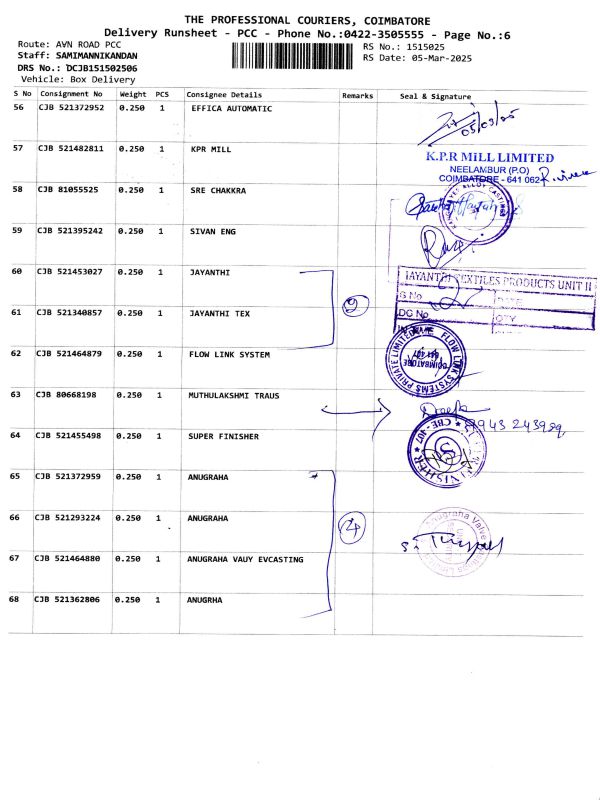 THE PROFESSIONAL COURIERS, COIMBATORE
Delivery Runsheet - PCC - Phone No.:0422-3505555 - Page No.:6
Route: AVN ROAD PCC
RS No.: 1515025
Staff: SAMIMANNIKANDAN
RS Date: 05-Mar-2025
DRS No.: DCJB151502506
Vehicle: Box Delivery
S No Consignment No Weight PCS Consignee Details Remarks Seal & Signature
56 CJB 521372952 0.250 1 EFFICA AUTOMATIC
05/03/25
57 CJB 521482811 0.250 1 KPR MILL
K.P.R MILL LIMITED
NEELAMBUR (P.O)
COIMBATORE - 641 062
58 CJB 81055525 0.250 1 SRE CHAKKRA
59 CJB 521395242 0.250 1 SIVAN ENG
60 CJB 521453027 0.250 1 JAYANTHI
JAYANTHI TEXTILES PRODUCTS UNIT II
S No
DATE
2
61 CJB 521340857 0.250 1 JAYANTHI TEX
DC No
QTY
62 CJB 521464879 0.250 1 FLOW LINK SYSTEM
FLOW LINK SYSTEMS PRIVATE LIMITED
COIMBATORE
641 407
63 CJB 80668198 0.250 1 MUTHULAKSHMI TRAUS
9943 243959
64 CJB 521455498 0.250 1 SUPER FINISHER
CBE - 407
65 CJB 521372959 0.250 1 ANUGRAHA
66 CJB 521293224 0.250 1 ANUGRAHA
4
Anugraha Valve
67 CJB 521464880 0.250 1 ANUGRAHA VAUY EVCASTING
68 CJB 521362806 0.250 1 ANUGRHA